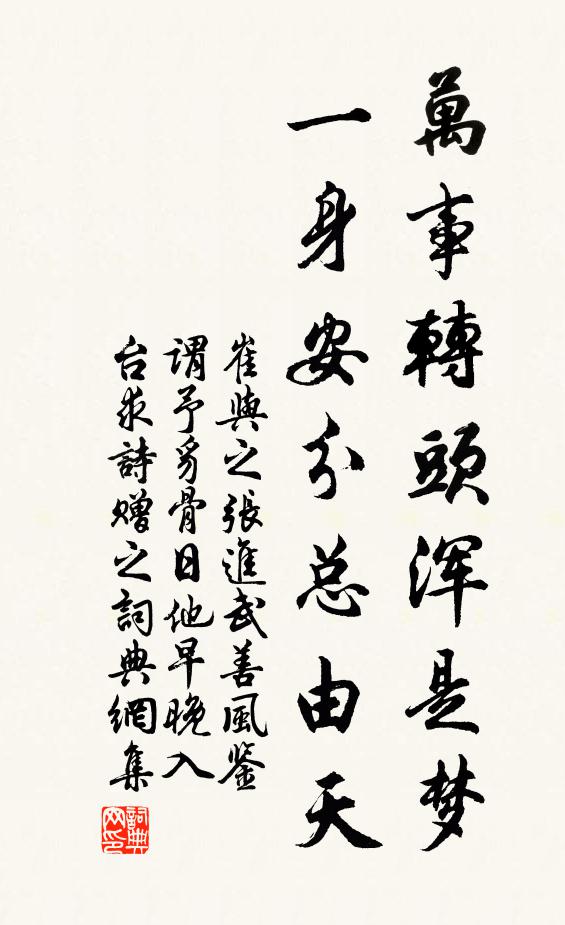 萬事轉頭浑是梦
一身安分总由天
崔與之張進武善風鉴
謂予豸骨日他早晚入
台求詩赠之詞典網集
詞典网印